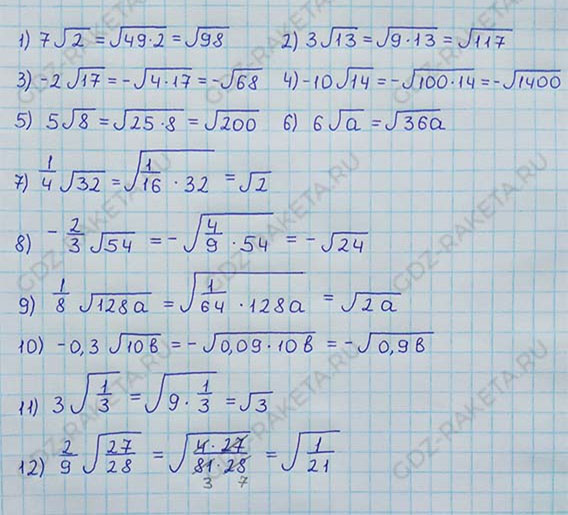 1) 7√2 = √(49·2) = √98   2) 3√13 = √(9·13) = √117
3) -2√17 = -√(4·17) = -√68   4) -10√14 = -√(100·14) = -√1400
5) 5√8 = √(25·8) = √200   6) 6√a = √(36a)
7) 1/4 √32 = √(1/16 · 32) = √2
8) -2/3 √54 = -√(4/9 · 54) = -√24
9) 1/8 √(128a) = √(1/64 · 128a) = √(2a)
10) -0,3√(10в) = -√(0,09·10в) = -√(0,9в)
11) 3√(1/3) = √(9 · 1/3) = √3
12) 2/9 √(27/28) = √((4·27)/(81·28)) = √(1/21)
3 7
GDZ-RAKETA.RU